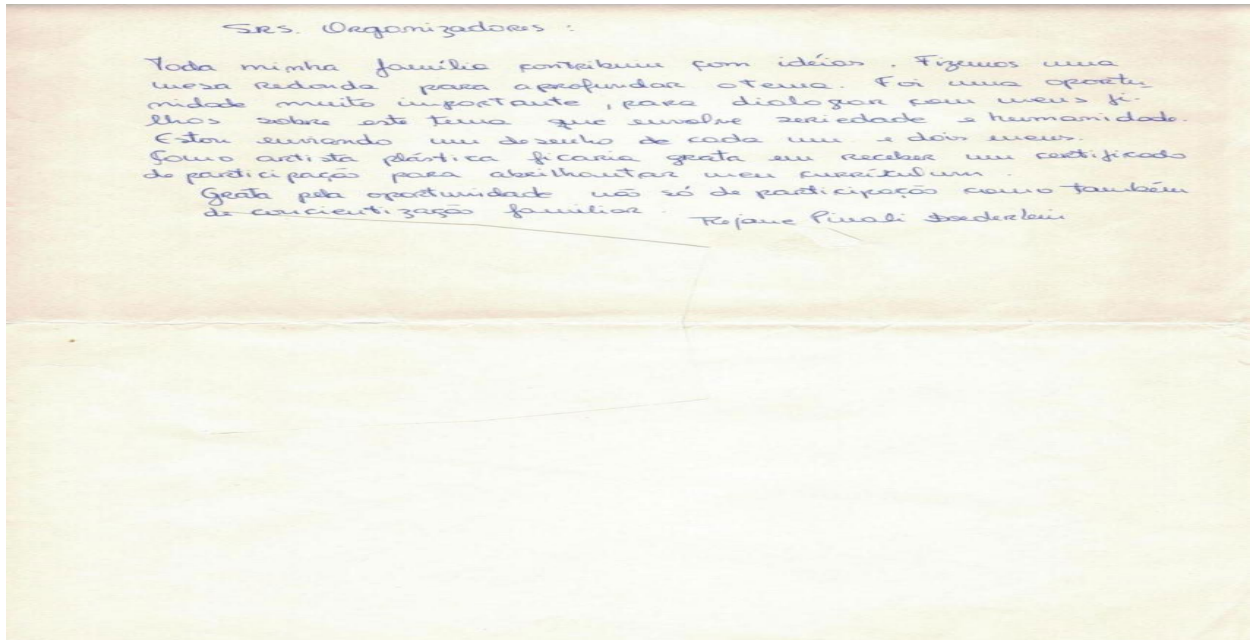 SRS. Organizadores :
Toda minha família contribuiu com idéias. Fizemos uma
mesa redonda para aprofundar o tema. Foi uma oportu
nidade muito importante, para dialogar com meus fi
lhos sobre este tema que envolve seriedade e humanidade.
Estou enviando um desenho de cada um e dois meus.
Como artista plástica ficaria grata em receber um certificado
de participação para abrilhantar meu currículum.
Grata pela oportunidade não só de participação como também
de concientização familiar.
Rejane Doederlein